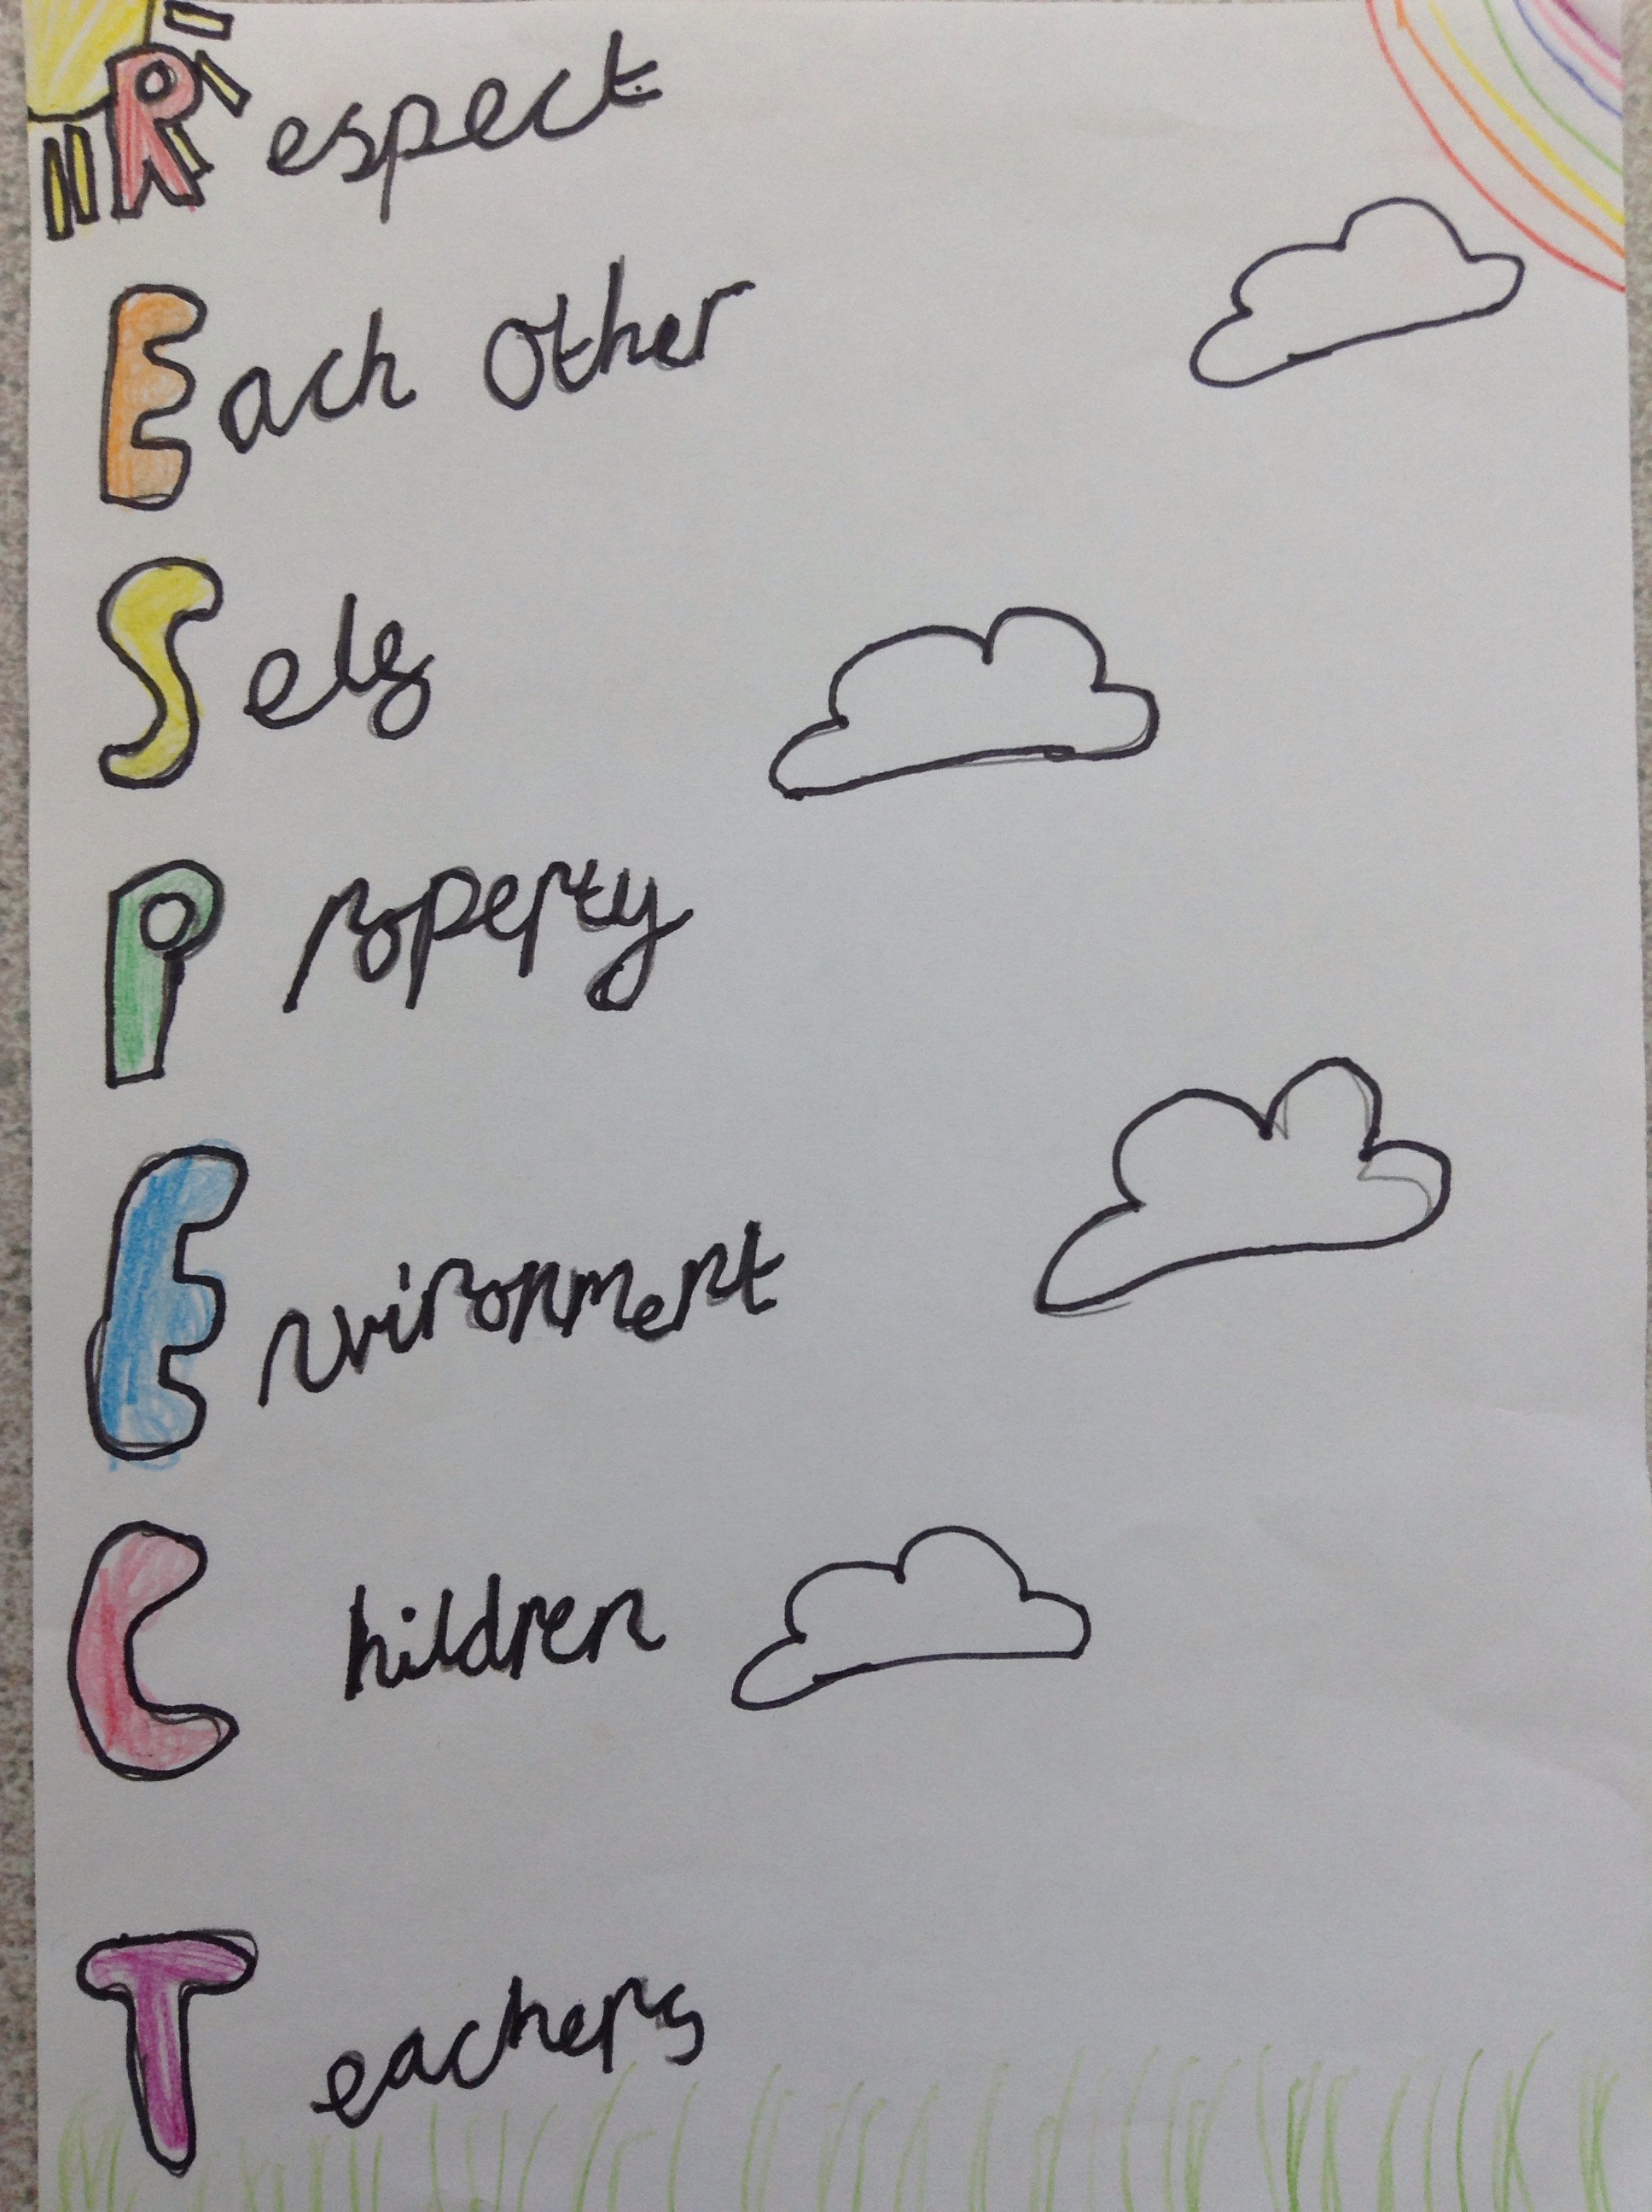 Respect
Each Other
Self
Property
Environment
Children
Teachers